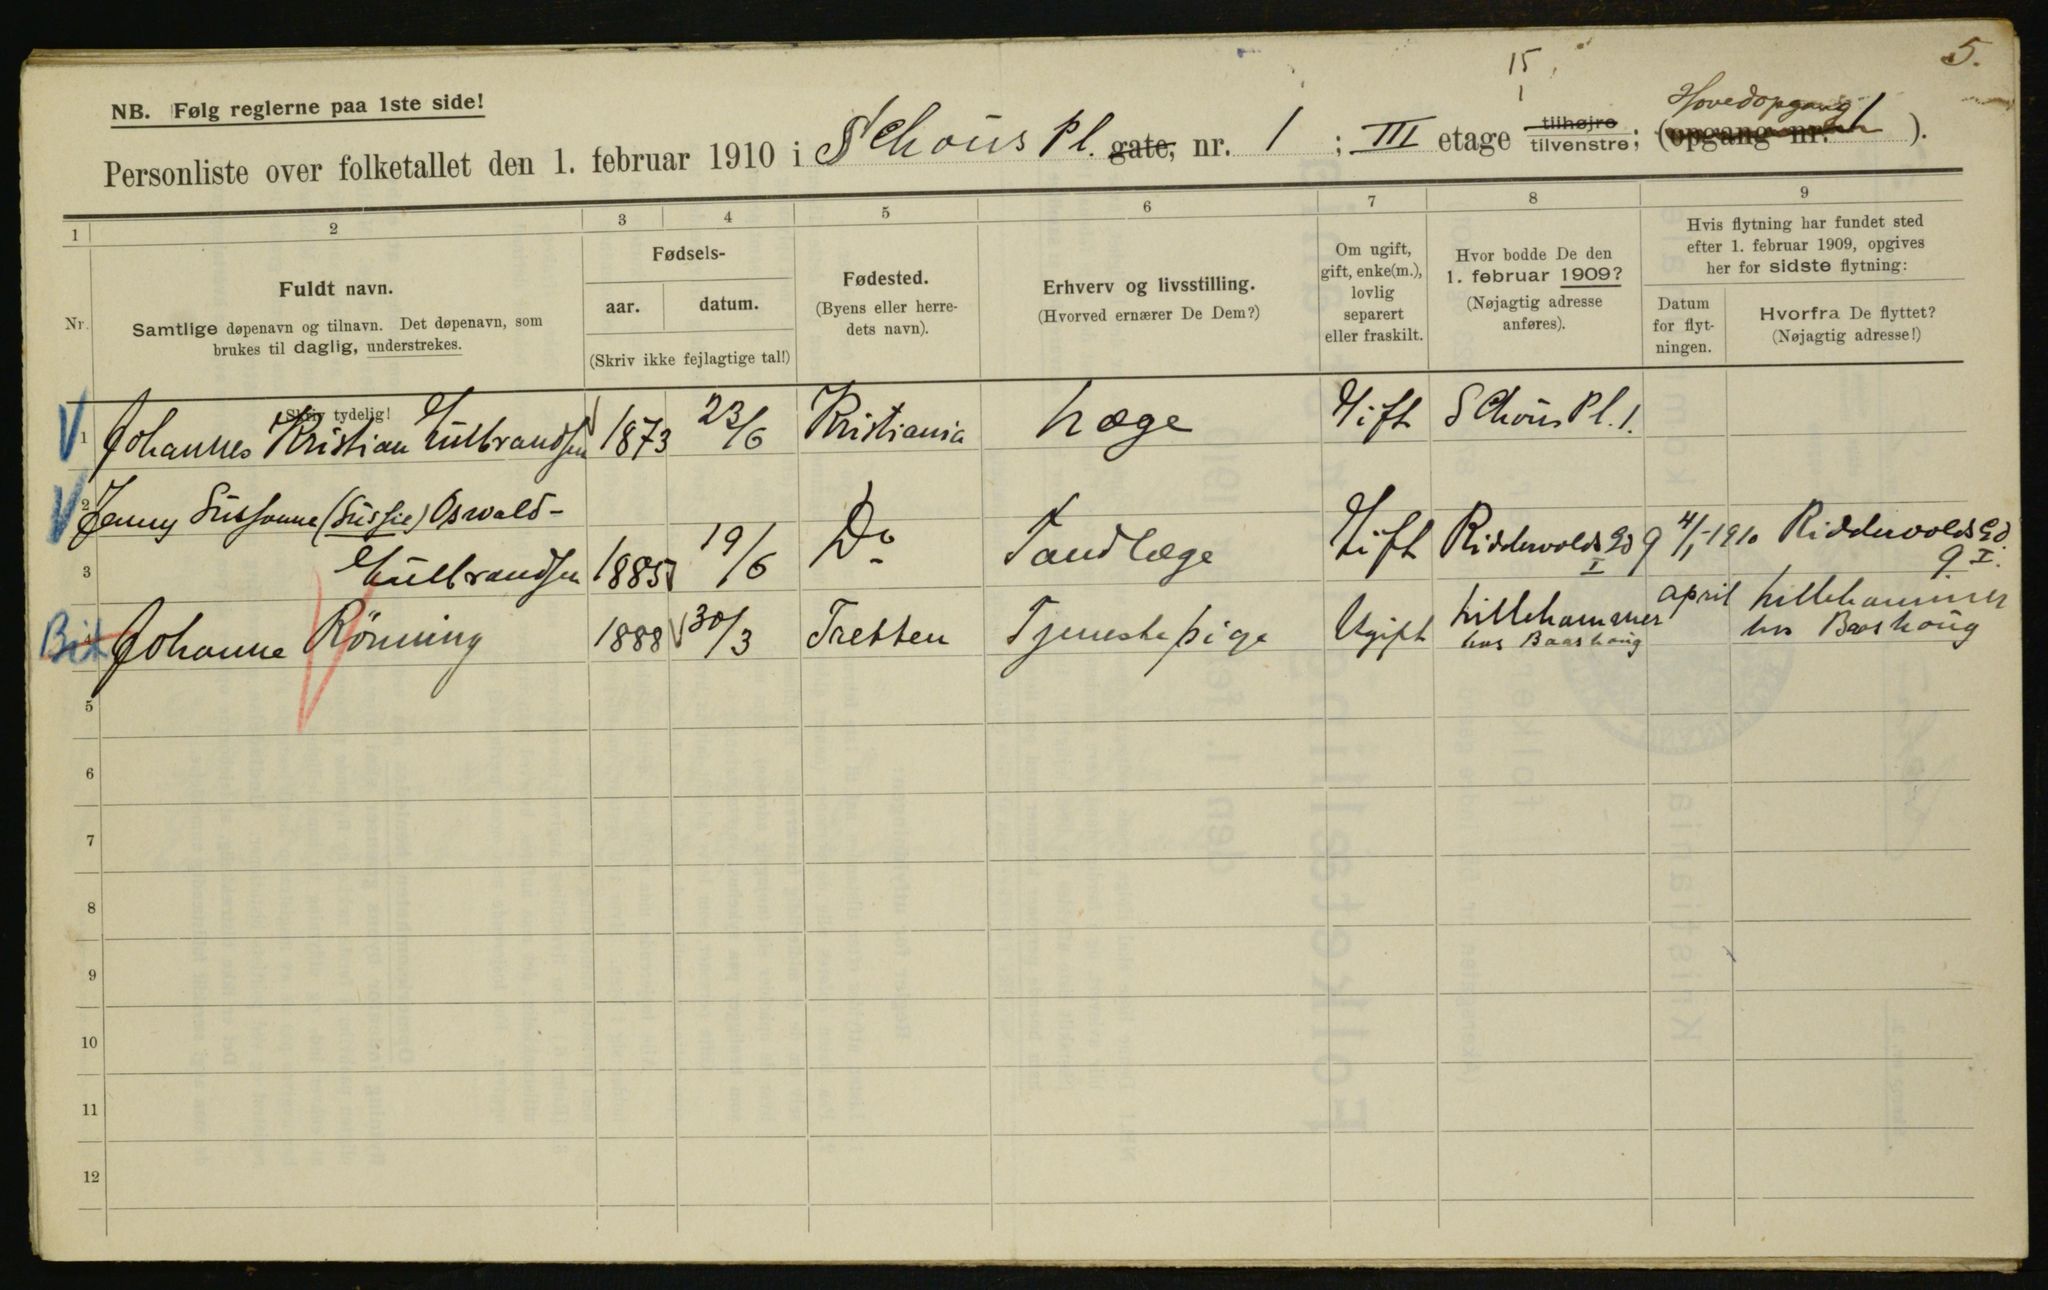 5.
15
1
Hovedopgang
NB. Følg reglerne paa 1ste side!
Personliste over folketallet den 1. februar 1910 i Schous Pl. gate, nr. 1 ; III etage tilhøjre tilvenstre; (opgang nr. 1 ).
1 2 3 4 5 6 7 8 9
Nr.
Fuldt navn.
Samtlige døpenavn og tilnavn. Det døpenavn, som
brukes til daglig, understrekes.
Skriv tydelig!
Fødsels-
aar. datum.
(Skriv ikke fejlagtige tal!)
Fødested.
(Byens eller herre-
dets navn).
Erhverv og livsstilling.
(Hvorved ernærer De Dem?)
Om ugift,
gift, enke(m.),
lovlig
separert
eller fraskilt.
Hvor bodde De den
1. februar 1909?
(Nøjagtig adresse
anføres).
Hvis flytning har fundet sted
efter 1. februar 1909, opgives
her for sidste flytning:
Datum
for flyt-
ningen.
Hvorfra De flyttet?
(Nøjagtig adresse!)
1 Johannes Kristian Gulbrandsen 1873 23/6 Kristiania Læge Gift Schous Pl. 1.
2 Jenny Sussanne (Sussie) Oswald-
3 Gulbrandsen 1885 19/6 Do Tandlæge Gift Riddervolds Gd 9 I 4/1-1910 Riddervolds Gd. 9 I.
Bit Johanne Rönning 1888 30/3 Tretten Tjenestepige Ugift Lillehammer april Lillehammer
hos Baashaug hos Baashaug
5
6
7
8
9
10
11
12